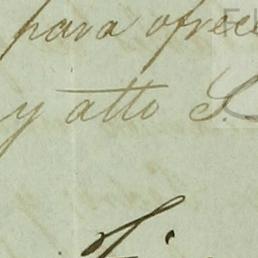 para ofrece
y atto S.